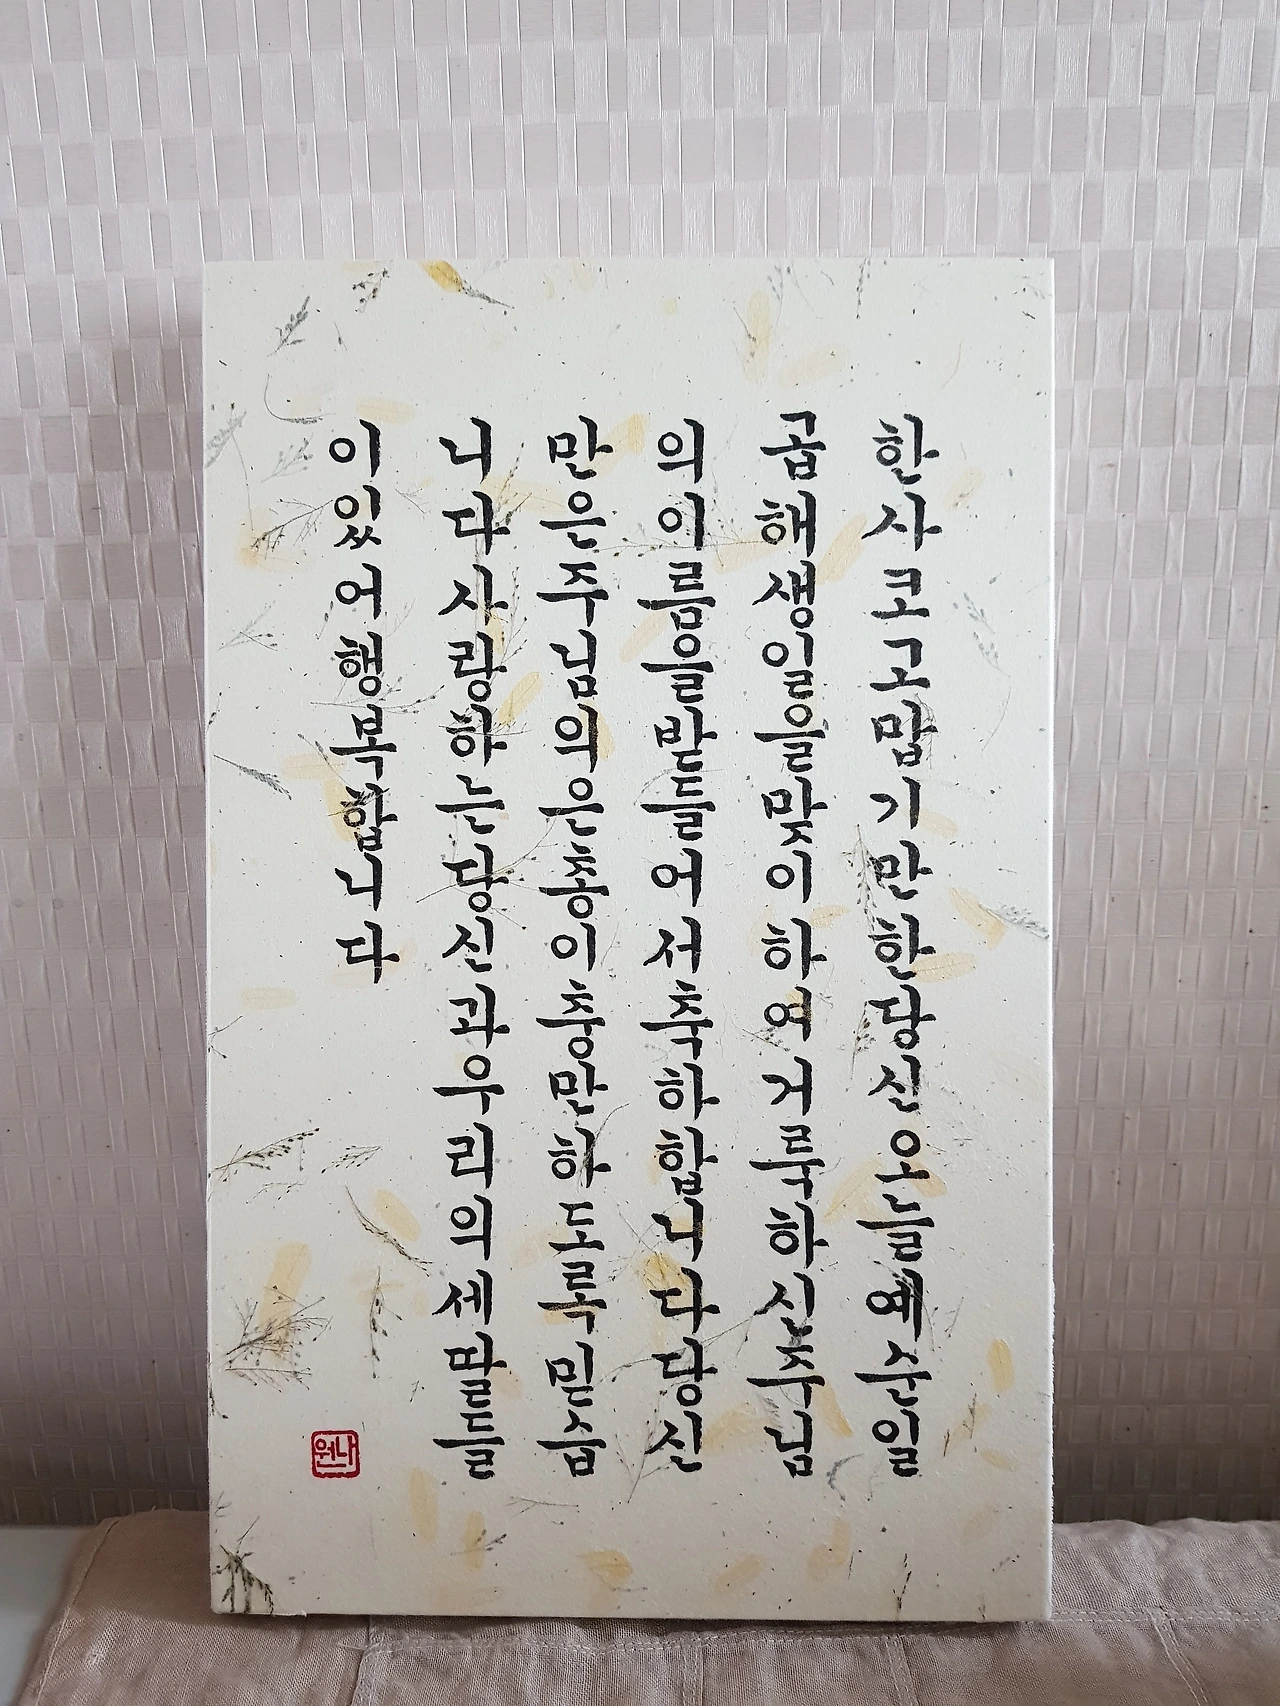 한사코고맙기만한당신오늘예순일
곱해생일을맞이하여거룩하신주님
의이름을받들어서축하합니다당신
만은주님의은총이충만하도록믿습
니다사랑하는당신과우리의세딸들
이있어행복합니다
나원